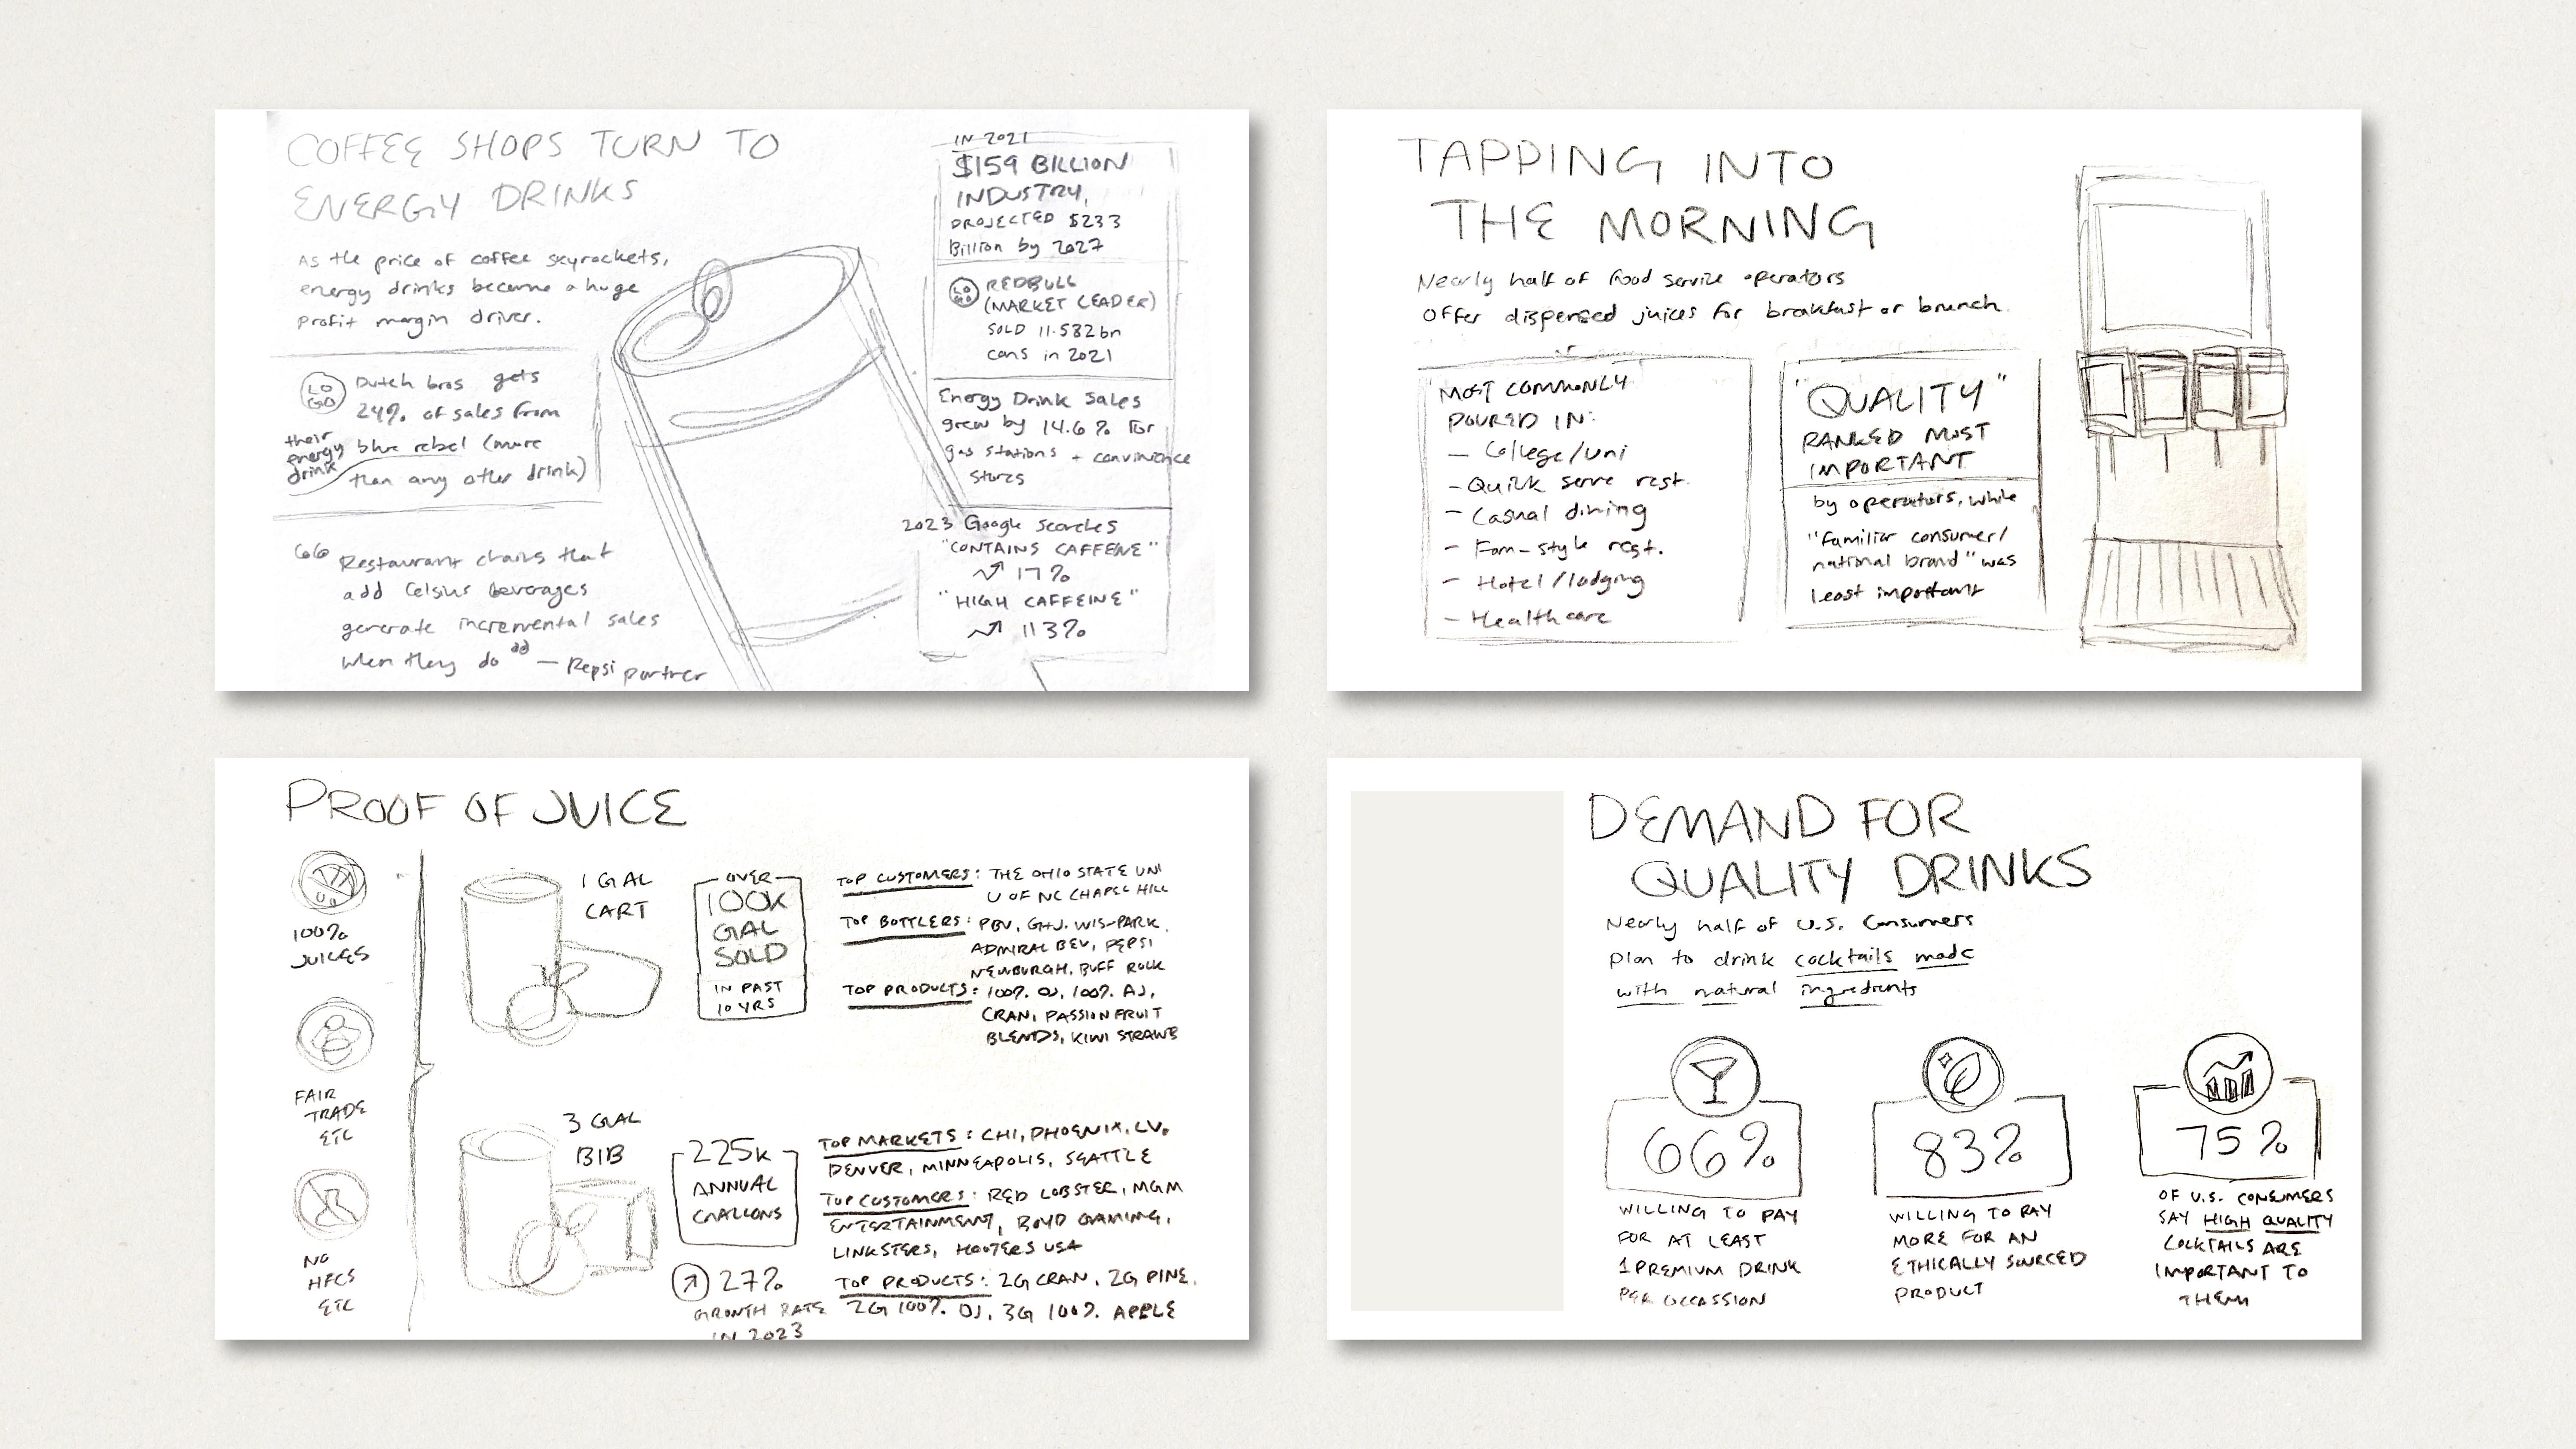 COFFEE SHOPS TURN TO
ENERGY DRINKS
As the price of coffee skyrockets,
energy drinks become a huge
profit margin driver.
LOGO
Dutch bros gets
24% of sales from
their energy drink
blue rebel (more
than any other drink)
“Restaurant chains that
add Celsius beverages
generate incremental sales
when they do” — Pepsi partner
IN 2021
$159 BILLION
INDUSTRY,
PROJECTED $233
Billion by 2027
LOGO
REDBULL
(MARKET LEADER)
SOLD 11.582bn
cans in 2021
Energy Drink Sales
grew by 14.6% for
gas stations + convinience
stores
2023 Google searches
"CONTAINS CAFFEINE"
17%
"HIGH CAFFEINE"
113%
TAPPING INTO
THE MORNING
Nearly half of food service operators
offer dispensed juices for breakfast or brunch.
MOST COMMONLY
POURED IN:
- College/uni
- Quick serve rest.
- Casual dining
- Fam-style rest.
- Hotel/lodging
- Healthcare
"QUALITY"
RANKED MOST
IMPORTANT
by operators, while
"familiar consumer/
national brand" was
least important
PROOF OF JUICE
100%
JUICES
FAIR
TRADE
ETC
NO
HFCS
ETC
1 GAL
CART
OVER
100K
GAL
SOLD
IN PAST
10 YRS
TOP CUSTOMERS: THE OHIO STATE UNI
U OF NC CHAPEL HILL
TOP BOTTLERS: PBV, G+J, WIS-PARK,
ADMIRAL BEV, PEPSI
NEWBURGH, BUFF ROCK
TOP PRODUCTS: 100% OJ, 100% AJ,
CRAN, PASSIONFRUIT
BLENDS, KIWI STRAWB
3 GAL
BIB
225K
ANNUAL
GALLONS
27%
GROWTH RATE
IN 2023
TOP MARKETS: CHI, PHOENIX, LV,
DENVER, MINNEAPOLIS, SEATTLE
TOP CUSTOMERS: RED LOBSTER, MGM
ENTERTAINMENT, BOYD GAMING,
LINKSTERS, HOOTERS USA
TOP PRODUCTS: 2G CRAN, 2G PINE,
2G 100% OJ, 3G 100% APPLE
DEMAND FOR
QUALITY DRINKS
Nearly half of U.S. Consumers
plan to drink cocktails made
with natural ingredients
66%
WILLING TO PAY
FOR AT LEAST
1 PREMIUM DRINK
PER OCCASSION
83%
WILLING TO PAY
MORE FOR AN
ETHICALLY SOURCED
PRODUCT
75%
OF U.S. CONSUMERS
SAY HIGH QUALITY
COCKTAILS ARE
IMPORTANT TO
THEM